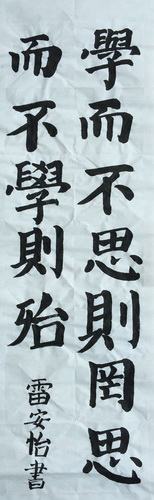 學而不思則罔思
而不學則殆
雷安怡書